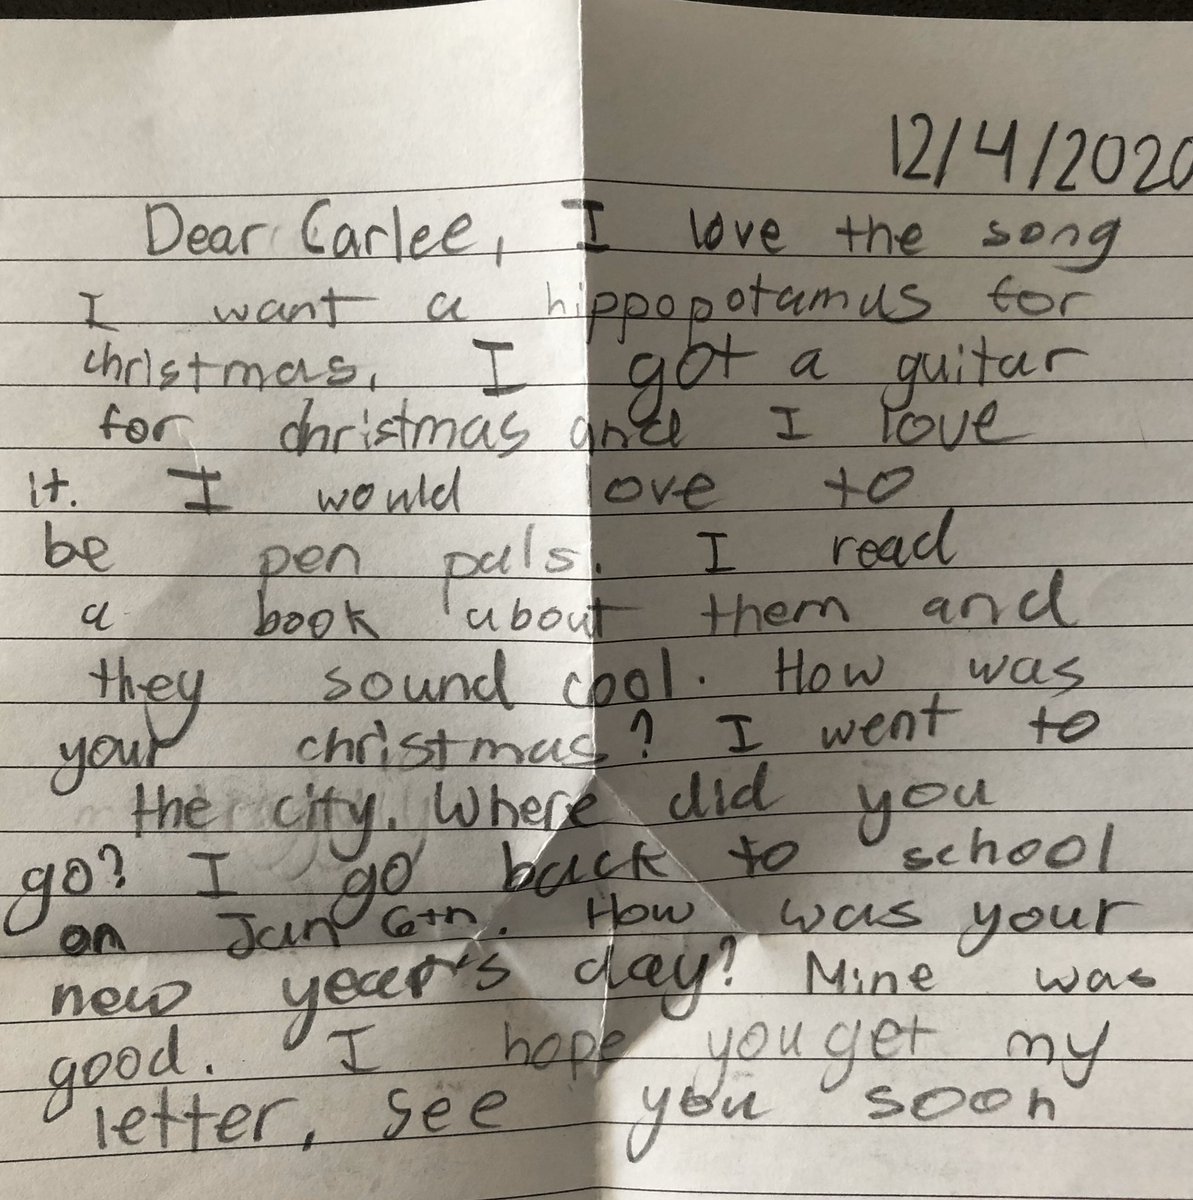 12/4/2020
Dear Carlee, I love the song
I want a hippopotamus for
christmas, I got a guitar
for christmas and I love
it. I would love to
be pen pals. I read
a book about them and
they sound cool. How was
your christmas? I went to
the city. Where did you
go? I go back to school
on Jan 6th. How was your
new year's day? Mine was
good. I hope you get my
letter, see you soon